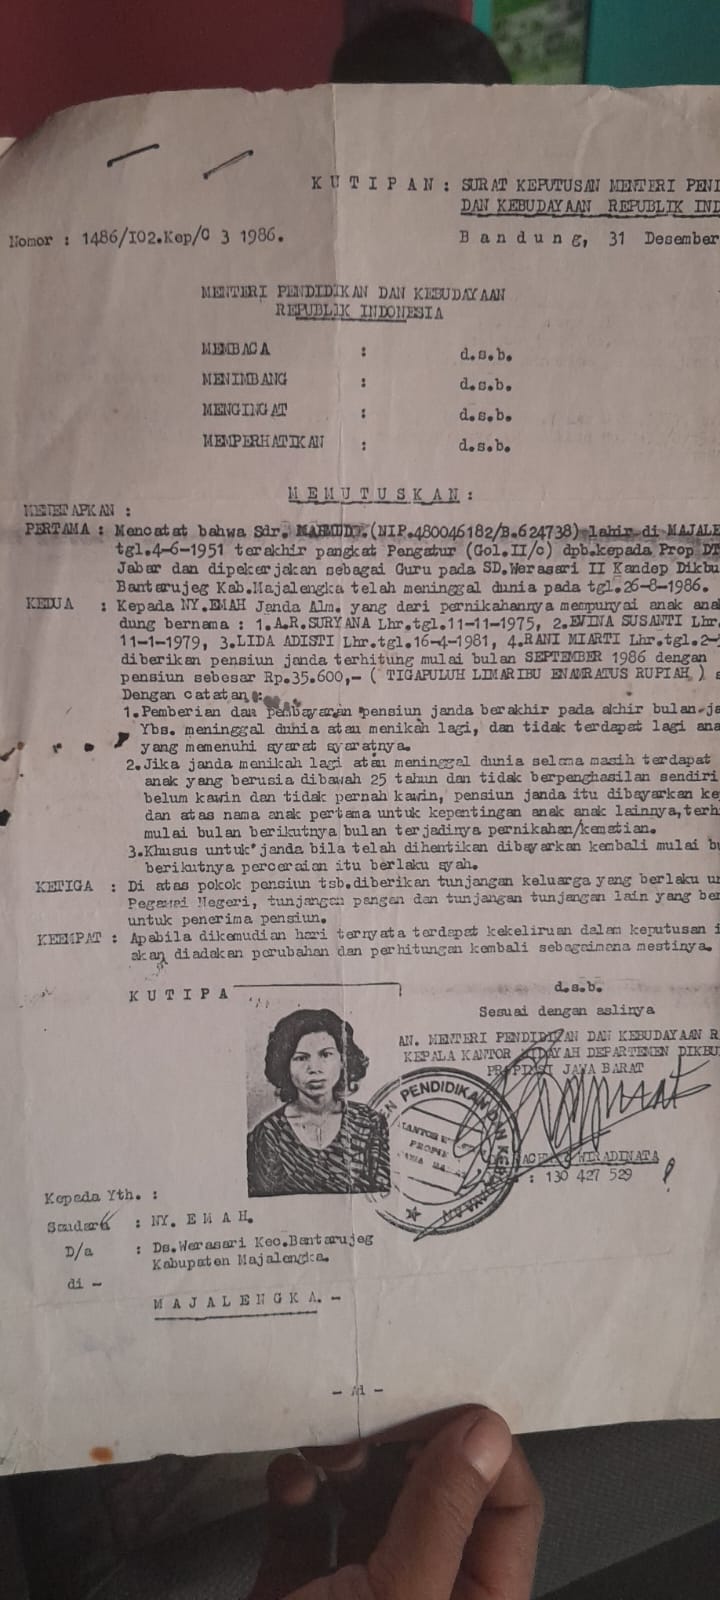 K U T I P A N : SURAT KEPUTUSAN MENTERI PENDI
DAN KEBUDAYAAN REPUBLIK IND
Nomor : 1486/I02.Kep/C 3 1986.
B a n d u n g, 31 Desember
MENTERI PENDIDIKAN DAN KEBUDAYAAN
REPUBLIK INDONESIA
MEMBACA : d.s.b.
MENIMBANG : d.s.b.
MENGINGAT : d.s.b.
MEMPERHATIKAN : d.s.b.
M E M U T U S K A N :
MENETAPKAN :
PERTAMA : Mencatat bahwa Sdr. (NIP.480046182/B.624738) lahir di MAJALE
tgl.4-6-1951 terakhir pangkat Pengatur (Gol.II/c) dpb.kepada Prop DT
Jabar dan dipekerjakan sebagai Guru pada SD.Werasari II Kandep Dikbu
Bantarujeg Kab.Majalengka telah meninggal dunia pada tgl.26-8-1986.
KEDUA : Kepada NY.EMAH Janda Alm. yang dari pernikahannya mempunyai anak ana
dung bernama : 1.A.R.SURYANA Lhr.tgl.11-11-1975, 2.EVINA SUSANTI Lhr.
11-1-1979, 3.LIDA ADISTI Lhr.tgl.16-4-1981, 4.RANI MIARTI Lhr.tgl.2-
diberikan pensiun janda terhitung mulai bulan SEPTEMBER 1986 dengan
pensiun sebesar Rp.35.600,- ( TIGAPULUH LIMARIBU ENAMRATUS RUPIAH ) s
Dengan catatan :
1.Pemberian dan pembayaran pensiun janda berakhir pada akhir bulan ja
Ybs. meninggal dunia atau menikah lagi, dan tidak terdapat lagi ana
yang memenuhi syarat syaratnya.
2.Jika janda menikah lagi atau meninggal dunia selama masih terdapat
anak yang berusia dibawah 25 tahun dan tidak berpenghasilan sendiri
belum kawin dan tidak pernah kawin, pensiun janda itu dibayarkan ke
dan atas nama anak pertama untuk kepentingan anak anak lainnya,terh
mulai bulan berikutnya bulan terjadinya pernikahan/kematian.
3.Khusus untuk janda bila telah dihentikan dibayarkan kembali mulai bu
berikutnya perceraian itu berlaku syah.
KETIGA : Di atas pokok pensiun tsb.diberikan tunjangan keluarga yang berlaku un
Pegawai Negeri, tunjangan pangan dan tunjangan tunjangan lain yang ber
untuk penerima pensiun.
KEEMPAT : Apabila dikemudian hari ternyata terdapat kekeliruan dalam keputusan i
akan diadakan perubahan dan perhitungan kembali sebagaimana mestinya.
K U T I P A
d.s.b.
Sesuai dengan aslinya
AN. MENTERI PENDIDIKAN DAN KEBUDAYAAN R
KEPALA KANTOR WIDAYAH DEPARTEMEN DIKBU
PROPINSI JAWA BARAT
PENDIDIKAN DAN KEBUDAYAAN
WIRADINATA
: 130 427 529
Kepada Yth. :
Saudara : NY. E M A H.
D/a : Ds.Werasari Kec.Bantarujeg
Kabupaten Majalengka.
di -
M A J A L E N G K A. -